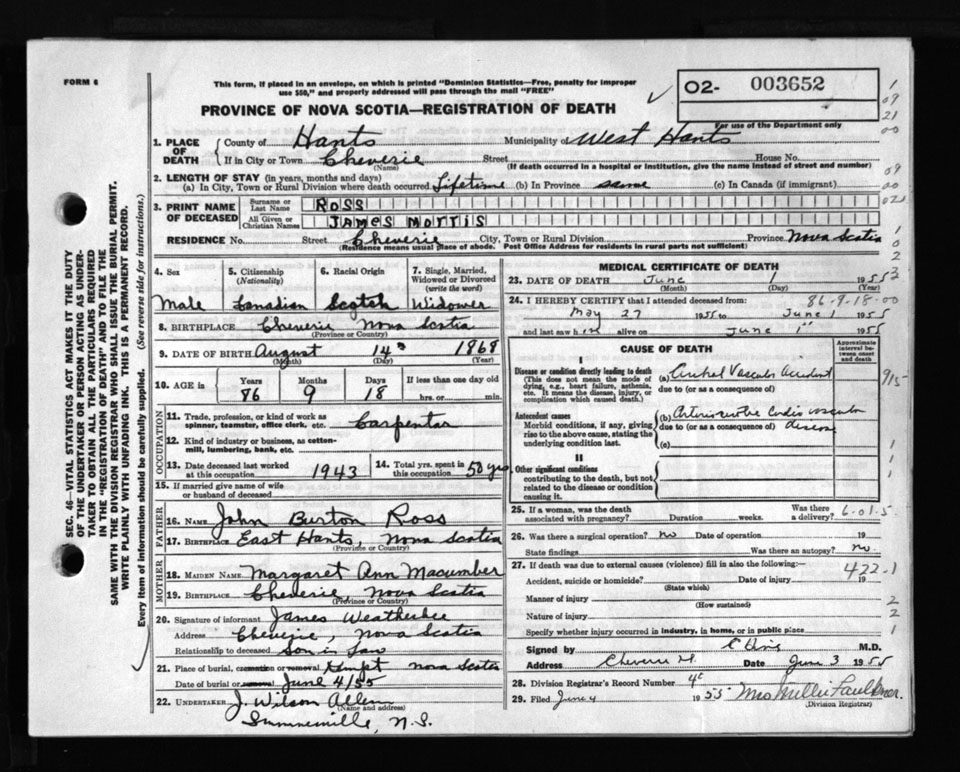 FORM 6
This form, if placed in an envelope, on which is printed "Dominion Statistics—Free, penalty for improper
use $50," and properly addressed will pass through the mail "FREE"
PROVINCE OF NOVA SCOTIA—REGISTRATION OF DEATH
O2- 003652
For use of the Department only
1. PLACE OF DEATH
County of Hants Municipality of West Hants
If in City or Town Cheverie Street House No.
(Name) (If death occurred in a hospital or institution, give the name instead of street and number)
2. LENGTH OF STAY (in years, months and days)
(a) In City, Town or Rural Division where death occurred Lifetime (b) In Province same (c) In Canada (if immigrant)
3. PRINT NAME OF DECEASED
Surname or Last Name ROSS
All Given or Christian Names JAMES MORRIS
RESIDENCE No. Street Cheverie City, Town or Rural Division Province Nova Scotia
(Residence means usual place of abode. Post Office Address for residents in rural parts not sufficient)
4. Sex 5. Citizenship (Nationality) 6. Racial Origin 7. Single, Married, Widowed or Divorced (write the word)
Male Canadian Scotch Widower
8. BIRTHPLACE Cheverie Nova Scotia
(Province or Country)
9. DATE OF BIRTH August 14 1868
(Month) (Day) (Year)
10. AGE in Years Months Days If less than one day old
86 9 18 hrs. or min.
OCCUPATION
11. Trade, profession, or kind of work as
spinner, teamster, office clerk, etc. Carpenter
12. Kind of industry or business, as cotton-
mill, lumbering, bank, etc.
13. Date deceased last worked
at this occupation 1943
14. Total yrs. spent in
this occupation 50 yrs
15. If married give name of wife
or husband of deceased
FATHER
16. NAME John Burton Ross
17. BIRTHPLACE East Hants, Nova Scotia
(Province or Country)
MOTHER
18. MAIDEN NAME Margaret Ann Macumber
19. BIRTHPLACE Cheverie Nova Scotia
(Province or Country)
20. Signature of informant James Weatherbee
Address Cheverie, Nova Scotia
Relationship to deceased Son in Law
21. Place of burial, cremation or removal Kempt Nova Scotia
Date of burial or removal June 4/55
22. UNDERTAKER J. Wilson Allen
(Name and address)
Summerville, N.S.
MEDICAL CERTIFICATE OF DEATH
23. DATE OF DEATH June 1 1955
(Month) (Day) (Year)
24. I HEREBY CERTIFY that I attended deceased from: 86-9-18-00
May 27 1955 to June 1 1955
and last saw him alive on June 1st 1955
CAUSE OF DEATH
Approximate interval between onset and death
I
Disease or condition directly leading to death
(This does not mean the mode of
dying, e.g., heart failure, asthenia,
etc. It means the disease, injury, or
complication which caused death.)
(a) Vascular Accident
due to (or as a consequence of)
915
Antecedent causes
Morbid conditions, if any, giving
rise to the above cause, stating the
underlying condition last.
(b) vascular
due to (or as a consequence of) disease
(c)
II
Other significant conditions
contributing to the death, but not
related to the disease or condition
causing it.
25. If a woman, was the death
associated with pregnancy? Duration weeks. Was there a delivery? 6-01-5
26. Was there a surgical operation? no Date of operation 19
State findings Was there an autopsy? no
27. If death was due to external causes (violence) fill in also the following:— 422-1
Accident, suicide or homicide? Date of injury 19
(State which)
Manner of injury
(How sustained)
Nature of injury
Specify whether injury occurred in industry, in home, or in public place
Signed by M.D.
Address Cheverie Date June 3 1955
28. Division Registrar's Record Number
29. Filed June 4 1955 Mrs Millie Faulkner
(Division Registrar)
SEC. 46—VITAL STATISTICS ACT MAKES IT THE DUTY
OF THE UNDERTAKER OR PERSON ACTING AS UNDER-
TAKER TO OBTAIN ALL THE PARTICULARS REQUIRED
IN THE "REGISTRATION OF DEATH" AND TO FILE THE
SAME WITH THE DIVISION REGISTRAR WHO SHALL ISSUE THE BURIAL PERMIT.
WRITE PLAINLY WITH UNFADING INK. THIS IS A PERMANENT RECORD.
Every item of information should be carefully supplied. (See reverse side for instructions.)